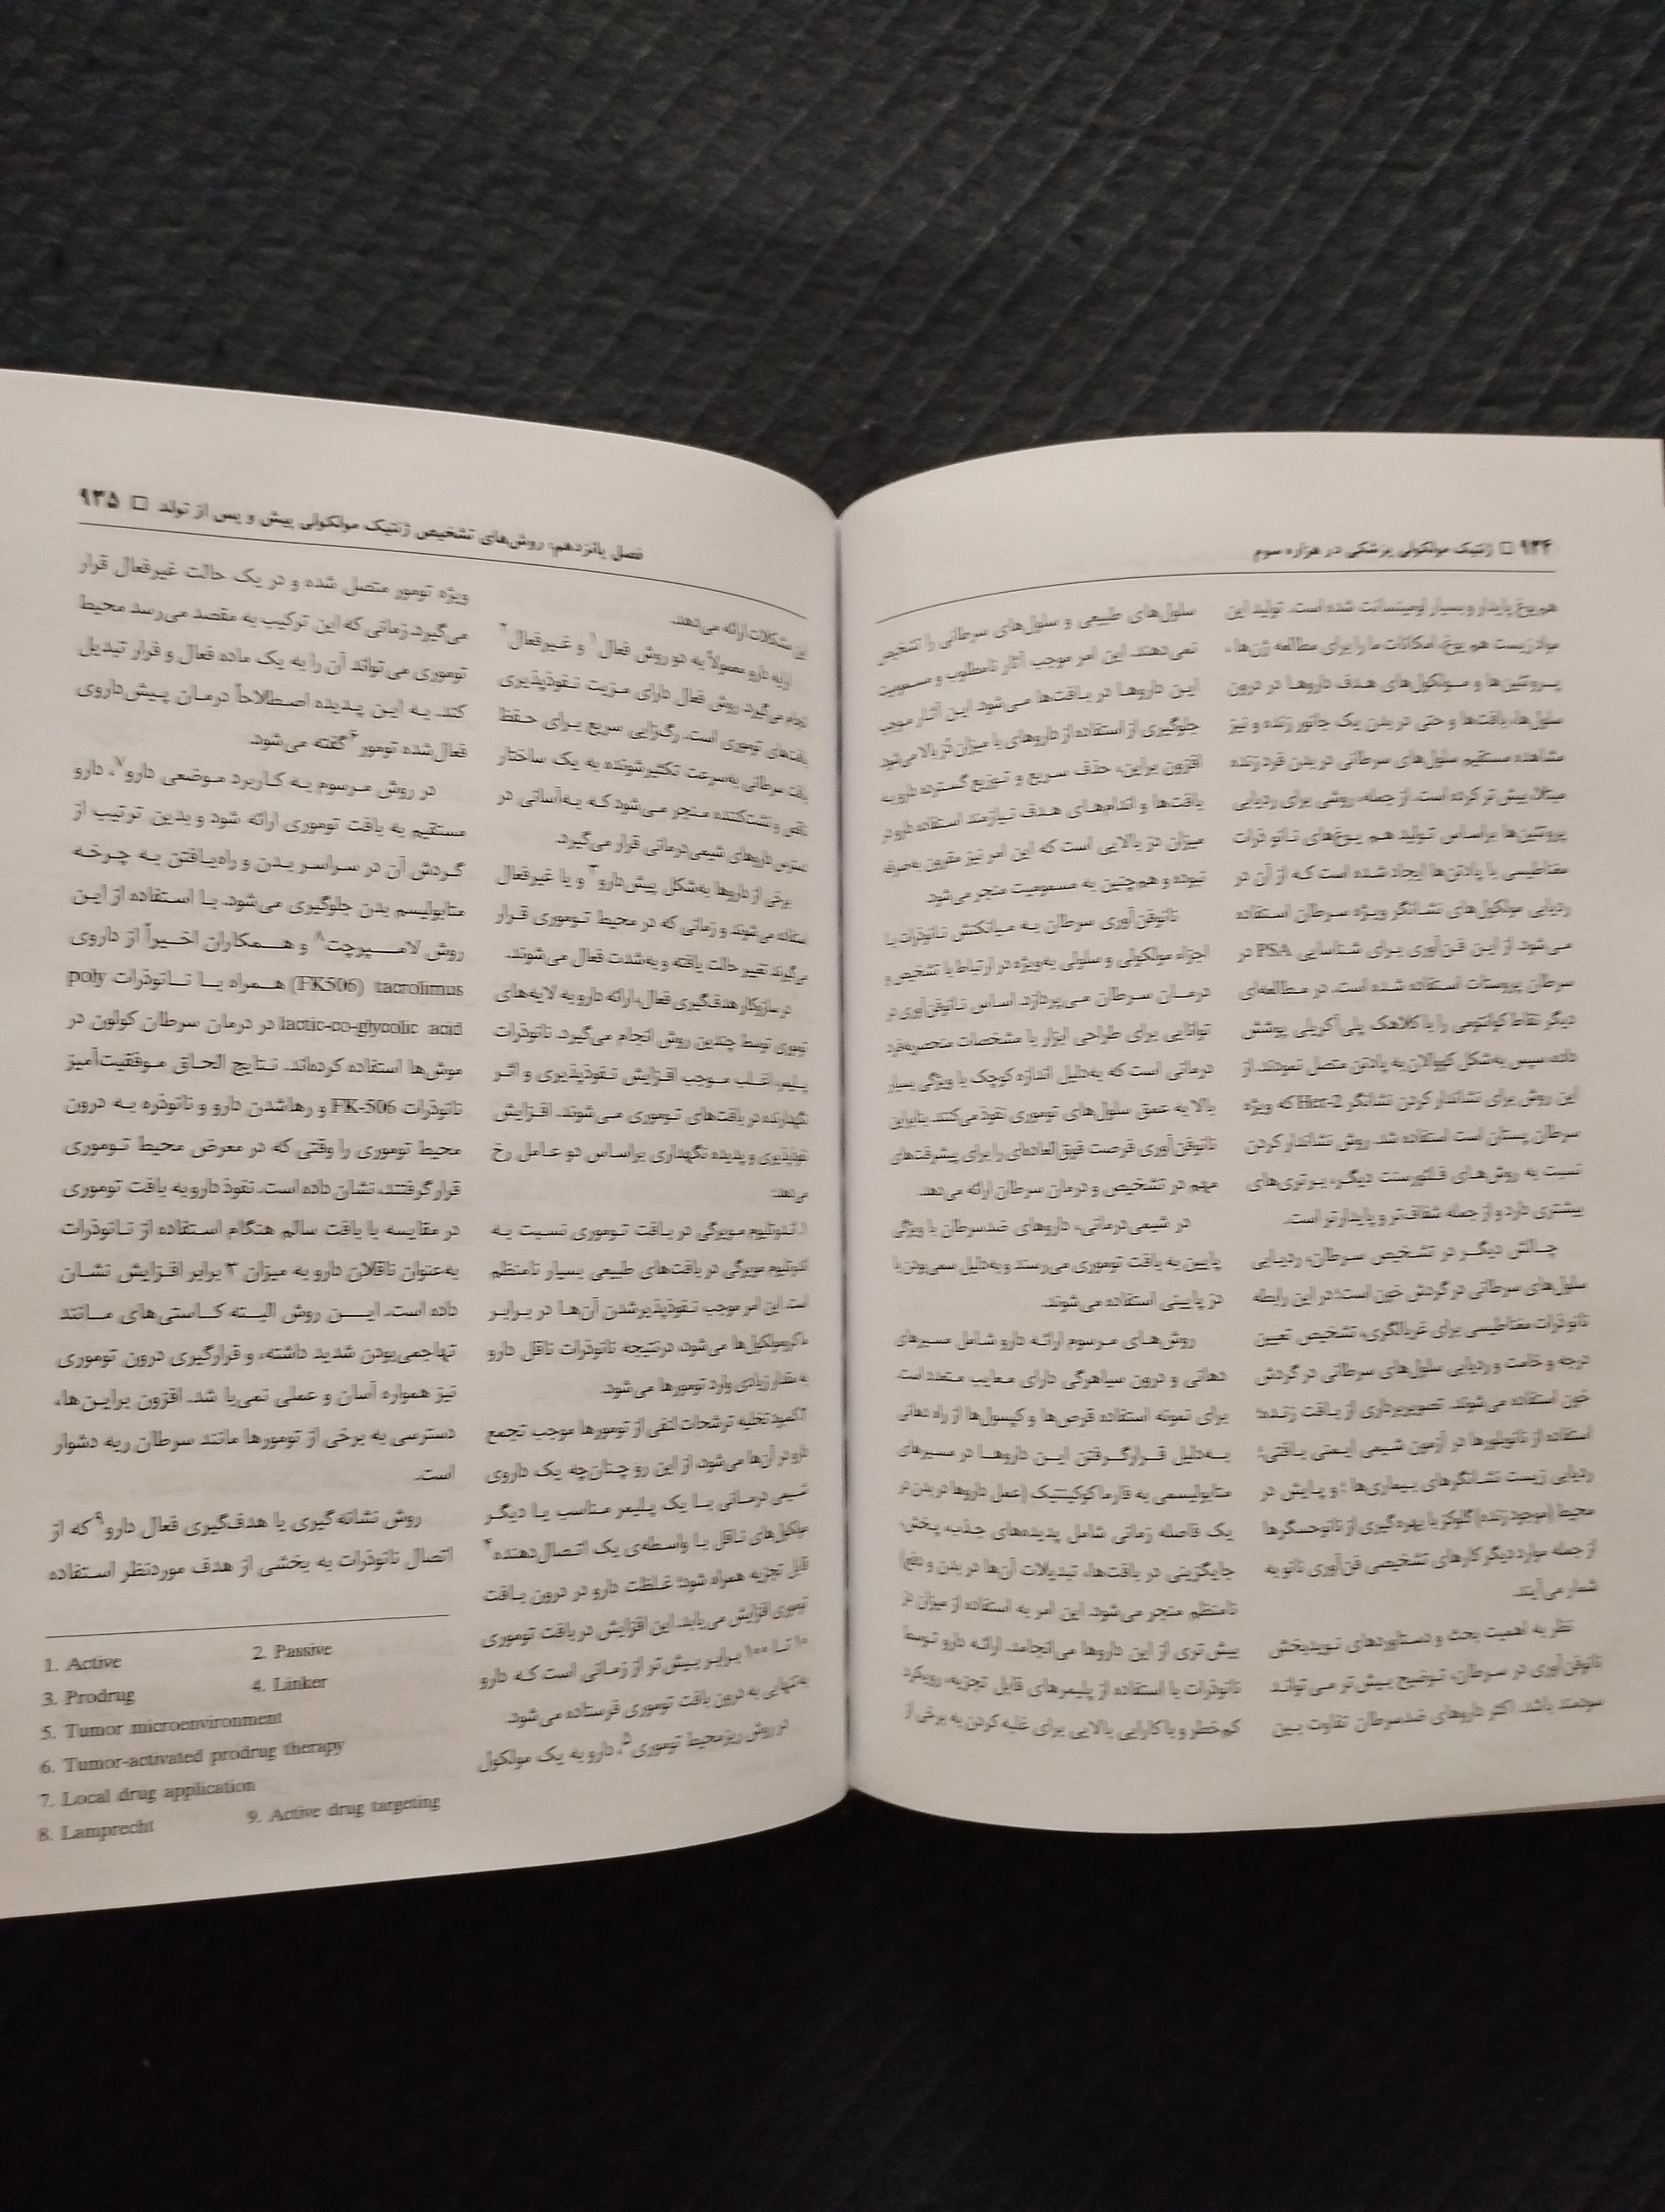 ۹۳۴ □ ژنتیک مولکولی پزشکی در هزاره سوم
هم‌یوغ پایدار و بسیار لومینسانت شده است. تولید این
مواد زیست هم یوغ، امکانات ما را برای مطالعه ژن‌ها،
پروتئین‌ها و مولکول‌های هدف داروها در درون
سلول‌ها، بافت‌ها و حتی در بدن یک جانور زنده و نیز
مشاهده مستقیم سلول‌های سرطانی در بدن فرد زنده
مبتلا، بیش‌تر کرده است. از جمله، روشی برای ردیابی
پروتئین‌ها براساس تولید هم یوغ‌های نانوذرات
مغناطیسی با پادتن‌ها ایجاد شده است که از آن در
ردیابی مولکول‌های نشانگر ویژه سرطان استفاده
می‌شود. از این فن‌آوری برای شناسایی PSA در
سرطان پروستات استفاده شده است. در مطالعه‌ای
دیگر نقاط کوانتومی را با کلاهک پلی‌آکریلی پوشش
داده، سپس به‌شکل کووالان به پادتن متصل نمودند. از
این روش برای نشاندار کردن نشانگر Her-2 که ویژه
سرطان پستان است استفاده شد. روش نشاندار کردن
نسبت به روش‌های فلئورسنت دیگر، برتری‌های
بیشتری دارد و از جمله شفاف‌تر و پایدارتر است.
چالش دیگر در تشخیص سرطان، ردیابی
سلول‌های سرطانی در گردش خون است؛ در این رابطه
نانوذرات مغناطیسی برای غربالگری، تشخیص تعیین
درجه و خامت و ردیابی سلول‌های سرطانی در گردش
خون استفاده می‌شوند. تصویربرداری از بافت زنده؛
استفاده از نانوبلورها در آزمون شیمی ایمنی بافتی؛
ردیابی زیست نشانگرهای بیماری‌ها؛ و پایش در
محیط (موجود زنده) گلوکز با بهره گیری از نانوحسگرها
از جمله موارد دیگر کارهای تشخیصی فن‌آوری نانو به
شمار می‌آیند.
نظر به اهمیت بحث و دستاوردهای نویدبخش
نانوفن‌آوری در سرطان، توضیح بیش‌تر می‌تواند
سودمند باشد. اکثر داروهای ضدسرطان تفاوت بین
سلول‌های طبیعی و سلول‌های سرطانی را تشخیص
نمی‌دهند. این امر موجب آثار نامطلوب و مسمومیت
این داروها در بافت‌ها می‌شود. این آثار موجب
جلوگیری از استفاده از داروهای با میزان دُز بالا می‌شود.
افزون براین، حذف سریع و توزیع گسترده دارو به
بافت‌ها و اندام‌های هدف نیازمند استفاده دارو در
میزان دز بالایی است که این امر نیز مقرون به‌صرفه
نبوده و هم‌چنین به مسمومیت منجر می‌شود.
نانوفن‌آوری سرطان به میانکنش نانوذرات با
اجزاء مولکولی و سلولی به‌ویژه در ارتباط با تشخیص و
درمان سرطان می‌پردازد. اساس نانوفن‌آوری در
توانایی برای طراحی ابزار با مشخصات منحصربه‌فرد
درمانی است که به‌دلیل اندازه کوچک با ویژگی بسیار
بالا به عمق سلول‌های توموری نفوذ می‌کنند. بنابراین
نانوفن‌آوری فرصت فوق‌العاده‌ای را برای پیشرفت‌های
مهم در تشخیص و درمان سرطان ارائه می‌دهد.
در شیمی‌درمانی، داروهای ضدسرطان با ویژگی
پایین به بافت توموری می‌رسند و به‌دلیل سمی‌بودن با
دز پایینی استفاده می‌شوند.
روش‌های مرسوم ارائه دارو شامل مسیرهای
دهانی و درون سیاهرگی دارای معایب متعدد است.
برای نمونه استفاده قرص‌ها و کپسول‌ها از راه دهانی
به‌دلیل قرارگرفتن این داروها در مسیرهای
متابولیسمی به فارماکوکینتیک (عمل داروها در بدن در
یک فاصله زمانی شامل پدیده‌های جذب، پخش،
جایگزینی در بافت‌ها، تبدیلات آن‌ها در بدن و دفع)
نامنظم منجر می‌شود. این امر به استفاده از میزان دز
بیش‌تری از این داروها می‌انجامد. ارائه دارو توسط
نانوذرات با استفاده از پلیمرهای قابل تجزیه، رویکرد
کم خطر و با کارایی بالایی برای غلبه کردن به برخی از
فصل پانزدهم، روش‌های تشخیص ژنتیک مولکولی پیش و پس از تولد □ ۹۳۵
این مشکلات ارائه می‌دهد.
ارایه دارو معمولاً به دو روش فعال۱ و غیرفعال۲
انجام می‌گیرد. روش فعال دارای مزیت نفوذپذیری
بافت‌های توموری است. رگ‌زایی سریع برای حفظ
بافت سرطانی به‌سرعت تکثیرشونده به یک ساختار
ناقص و نشت‌کننده منجر می‌شود که به‌آسانی در
دسترس داروهای شیمی‌درمانی قرار می‌گیرد.
برخی از داروها به‌شکل پیش‌دارو۳ و یا غیرفعال
استفاده می‌شوند و زمانی که در محیط توموری قرار
می‌گیرند تغییر حالت یافته و به‌شدت فعال می‌شوند.
در سازوکار هدف‌گیری فعال، ارائه دارو به لایه‌های
توموری توسط چندین روش انجام می‌گیرد. نانوذرات
پلیمر، اغلب موجب افزایش نفوذپذیری و اثر
نگهدارنده در بافت‌های توموری می‌شوند. افزایش
نفوذپذیری و پدیده نگهداری براساس دو عامل رخ
می‌دهد:
۱. اندوتلیوم مویرگی در بافت توموری نسبت به
اندوتلیوم مویرگی در بافت‌های طبیعی بسیار نامنظم
است. این امر موجب نفوذپذیرشدن آن‌ها در برابر
ماکرومولکول‌ها می‌شود، درنتیجه نانوذرات ناقل دارو
به مقدار زیادی وارد تومورها می‌شود.
۲. کمبود تخلیه ترشحات لنفی از تومورها موجب تجمع
دارو در آن‌ها می‌شود. از این رو چنان‌چه یک داروی
شیمی درمانی با یک پلیمر مناسب یا دیگر
مولکول‌های ناقل با واسطه‌ی یک اتصال‌دهنده۴
قابل تجزیه همراه شود؛ غلظت دارو در درون بافت
توموری افزایش می‌یابد. این افزایش در بافت توموری
۱۰ تا ۱۰۰ برابر بیش‌تر از زمانی است که دارو
به‌تنهایی به درون بافت توموری فرستاده می‌شود.
در روش ریزمحیط توموری۵، دارو به یک مولکول
ویژه تومور متصل شده و در یک حالت غیرفعال قرار
می‌گیرد. زمانی که این ترکیب به مقصد می‌رسد محیط
توموری می‌تواند آن را به یک ماده فعال و فرار تبدیل
کند. به این پدیده اصطلاحاً درمان پیش‌داروی
فعال‌شده تومور۶ گفته می‌شود.
در روش مرسوم به کاربرد موضعی دارو۷، دارو
مستقیم به بافت توموری ارائه شود و بدین ترتیب از
گردش آن در سراسر بدن و راه‌یافتن به چرخه
متابولیسم بدن جلوگیری می‌شود. با استفاده از این
روش لامپرچت۸ و همکاران اخیراً از داروی
tacrolimus (FK506) همراه با نانوذرات poly
lactic-co-glycolic acid در درمان سرطان کولون در
موش‌ها استفاده کرده‌اند. نتایج الحاق موفقیت‌آمیز
نانوذرات FK-506 و رهاشدن دارو و نانوذره به درون
محیط توموری را وقتی که در معرض محیط توموری
قرار گرفتند، نشان داده است. نفوذ دارو به بافت توموری
در مقایسه با بافت سالم هنگام استفاده از نانوذرات
به‌عنوان ناقلان دارو به میزان ۳ برابر افزایش نشان
داده است. این روش البته کاستی‌های مانند
تهاجمی‌بودن شدید داشته، و قرارگیری درون توموری
نیز همواره آسان و عملی نمی‌با شد. افزون براین‌ها،
دسترسی به برخی از تومورها مانند سرطان ریه دشوار
است.
روش نشانه‌گیری یا هدف‌گیری فعال دارو۹ که از
اتصال نانوذرات به بخشی از هدف موردنظر استفاده
1. Active 2. Passive
3. Prodrug 4. Linker
5. Tumor microenvironment
6. Tumor-activated prodrug therapy
7. Local drug application
8. Lamprecht 9. Active drug targeting